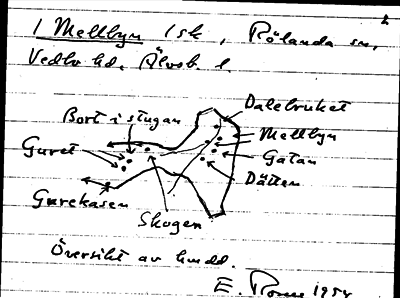 2
1 Mellbyn 1 sk, Rölanda sn,
Vedbo hd. Älvsb. l.
Dalebruket
Bort i stugan
Mellbyn
Guret
Gatan
Dätten
Gurekasen
Skogen
Översikt av hmdd.
E. 1954